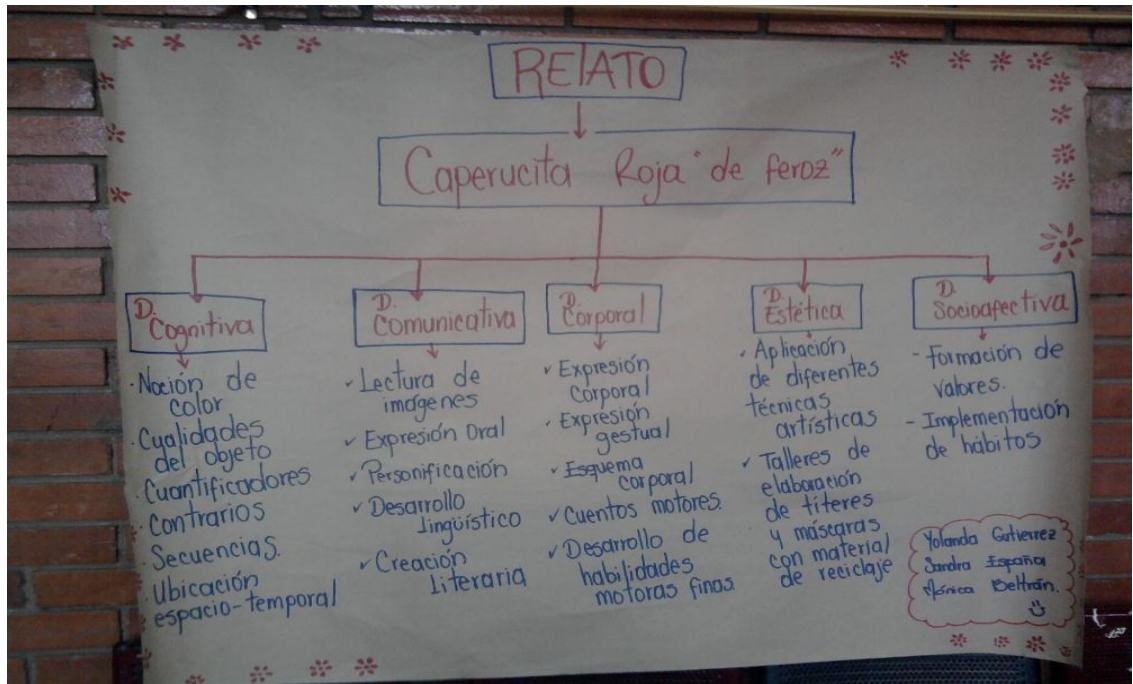 RElATO
Caperucita Roja "de feroz"
D.
Cognitiva
· Noción de
color
· Cualidades
del objeto
· Cuantificadores
· Contrarios
· Secuencias.
· Ubicación
espacio-temporal
D.
Comunicativa
✓ Lectura de
imágenes
✓ Expresión Oral
✓ Personificación
✓ Desarrollo
lingüístico
✓ Creación
literaria
D.
Corporal
✓ Expresión
corporal
✓ Expresión
gestual
✓ Esquema
corporal
✓ Cuentos motores.
✓ Desarrollo de
habilidades
motoras finas
D.
Estética
✓ Aplicación
de diferentes
técnicas
artísticas
✓ Talleres de
elaboración
de títeres
y máscaras
con material
de reciclaje
D.
Socioafectiva
- Formación de
valores.
- Implementación
de hábitos
Yolanda Gutierrez
Sandra España
Mónica Beltrán.